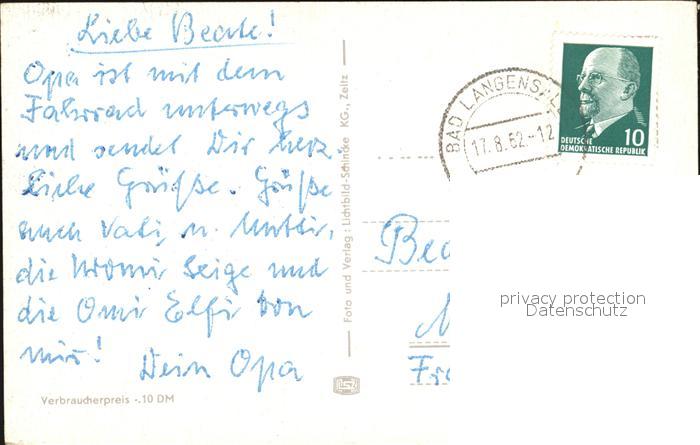 Liebe Beate!
Opa ist mit dem
Fahrrad unterwegs
und sendet Dir herz-
liche Grüße. Grüße
auch Vati, u. Mutti,
die und
die Omi Elfi von
mir!
Dein Opa
Verbraucherpreis -.10 DM
Foto und Verlag: Lichtbild-Schincke KG., Zeitz
BAD LANGENS
17.8.62.-12
DEUTSCHE
DEMOKRATISCHE REPUBLIK
10
Bea
Fr
privacy protection
Datenschutz